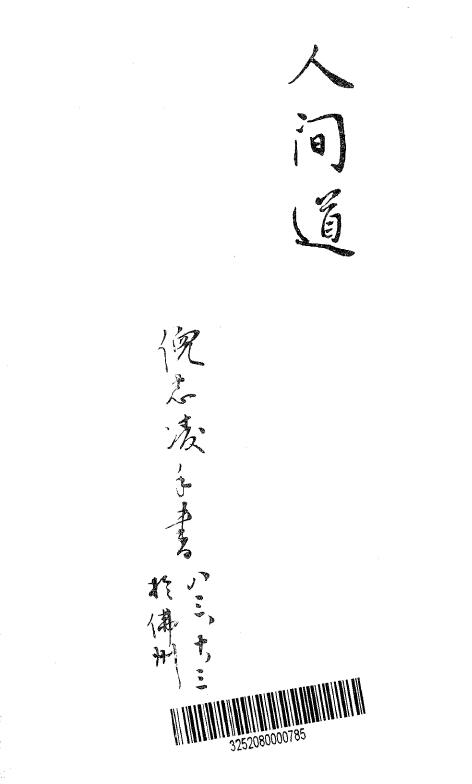 人间道
倪志凌手书
八三、十、三
於佛州
3252080000785